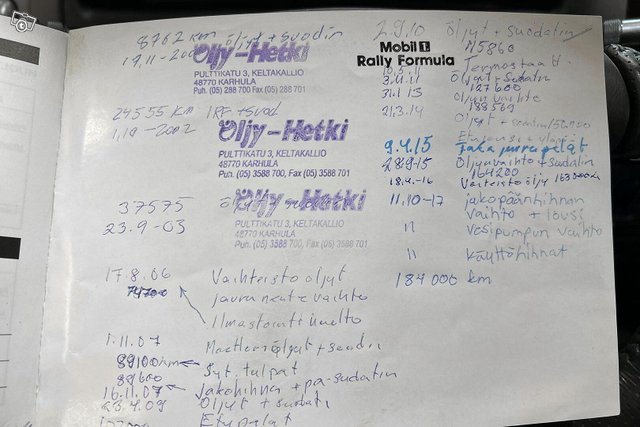 8762 km öljyt + suodin
17.11-200
Öljy-Hetki
PULTTIKATU 3, KELTAKALLIO
48770 KARHULA
Puh. (05) 288 700, Fax (05) 288 701
24555 KM
1.10-2002
Öljy-Hetki
PULTTIKATU 3, KELTAKALLIO
48770 KARHULA
Puh. (05) 3588 700, Fax (05) 3588 701
37575
23.9-03
Öljy-Hetki
PULTTIKATU 3, KELTAKALLIO
48770 KARHULA
Puh. (05) 3588 700, Fax (05) 3588 701
17.8.06 Vaihteisto öljyt
74700
vaihto
Ilmastointi huolto
1.11.07
89100km Syt. tulpat
89600
16.11.07 jakohihna +
23.4.09 Öljyt +
Etupalat
2.9.10 Öljyt + suodatin
Mobil 1
Rally Formula
3.11.11 öljyt + suodatin
127600
3.1.13 öljyn vaihto
21.3.14 Öljyt +
9.4.15 Taka jarrupalat
28.9-15 Öljynvaihto + suodatin
164200
18.4.-16 Vaihteisto öljy
11.10-17 jakopäänhihnan
vaihto +
11 vesipumpun vaihto
11 käyttöhihnat
184000 km